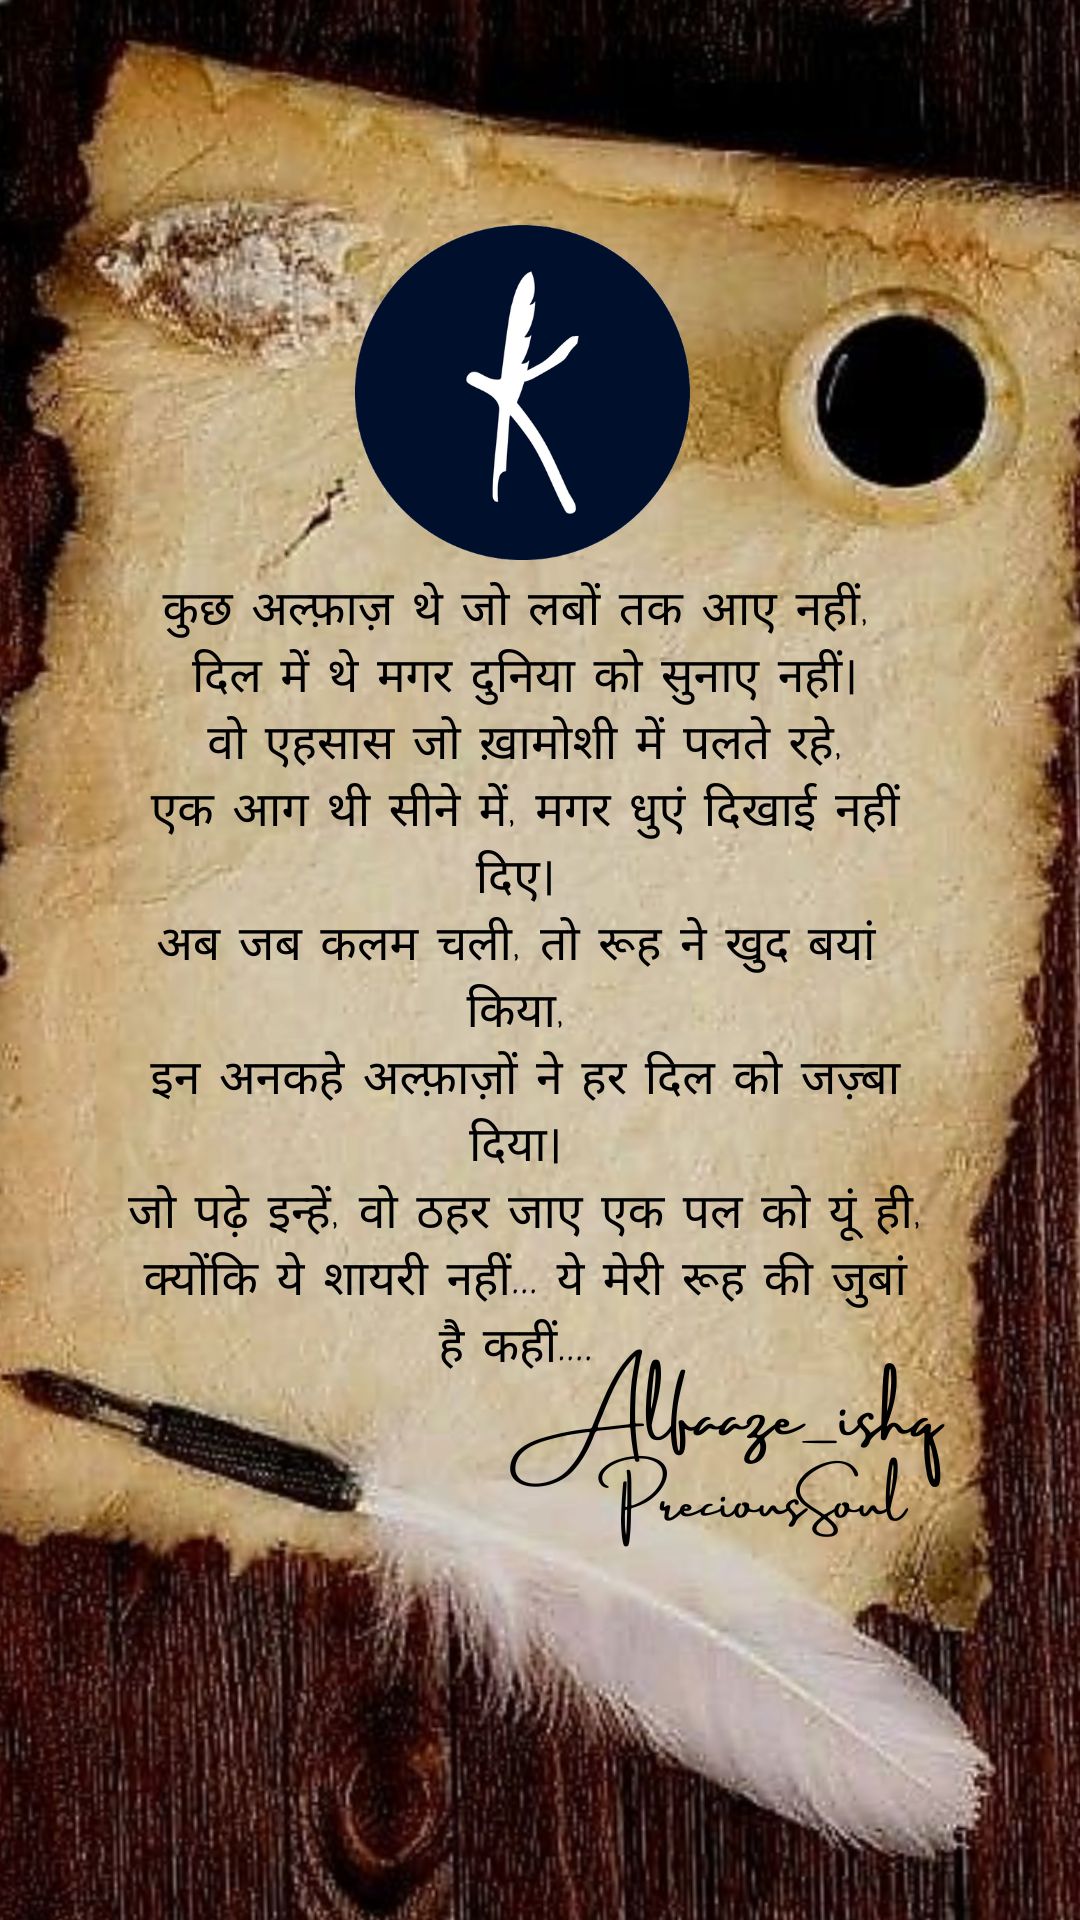 कुछ अल्फ़ाज़ थे जो लबों तक आए नहीं,
दिल में थे मगर दुनिया को सुनाए नहीं।
वो एहसास जो ख़ामोशी में पलते रहे,
एक आग थी सीने में, मगर धुएं दिखाई नहीं
दिए।
अब जब कलम चली, तो रूह ने खुद बयां
किया,
इन अनकहे अल्फ़ाज़ों ने हर दिल को जज़्बा
दिया।
जो पढ़े इन्हें, वो ठहर जाए एक पल को यूं ही,
क्योंकि ये शायरी नहीं... ये मेरी रूह की जुबां
है कहीं....
Alfaaze_ishq
PreciousSoul